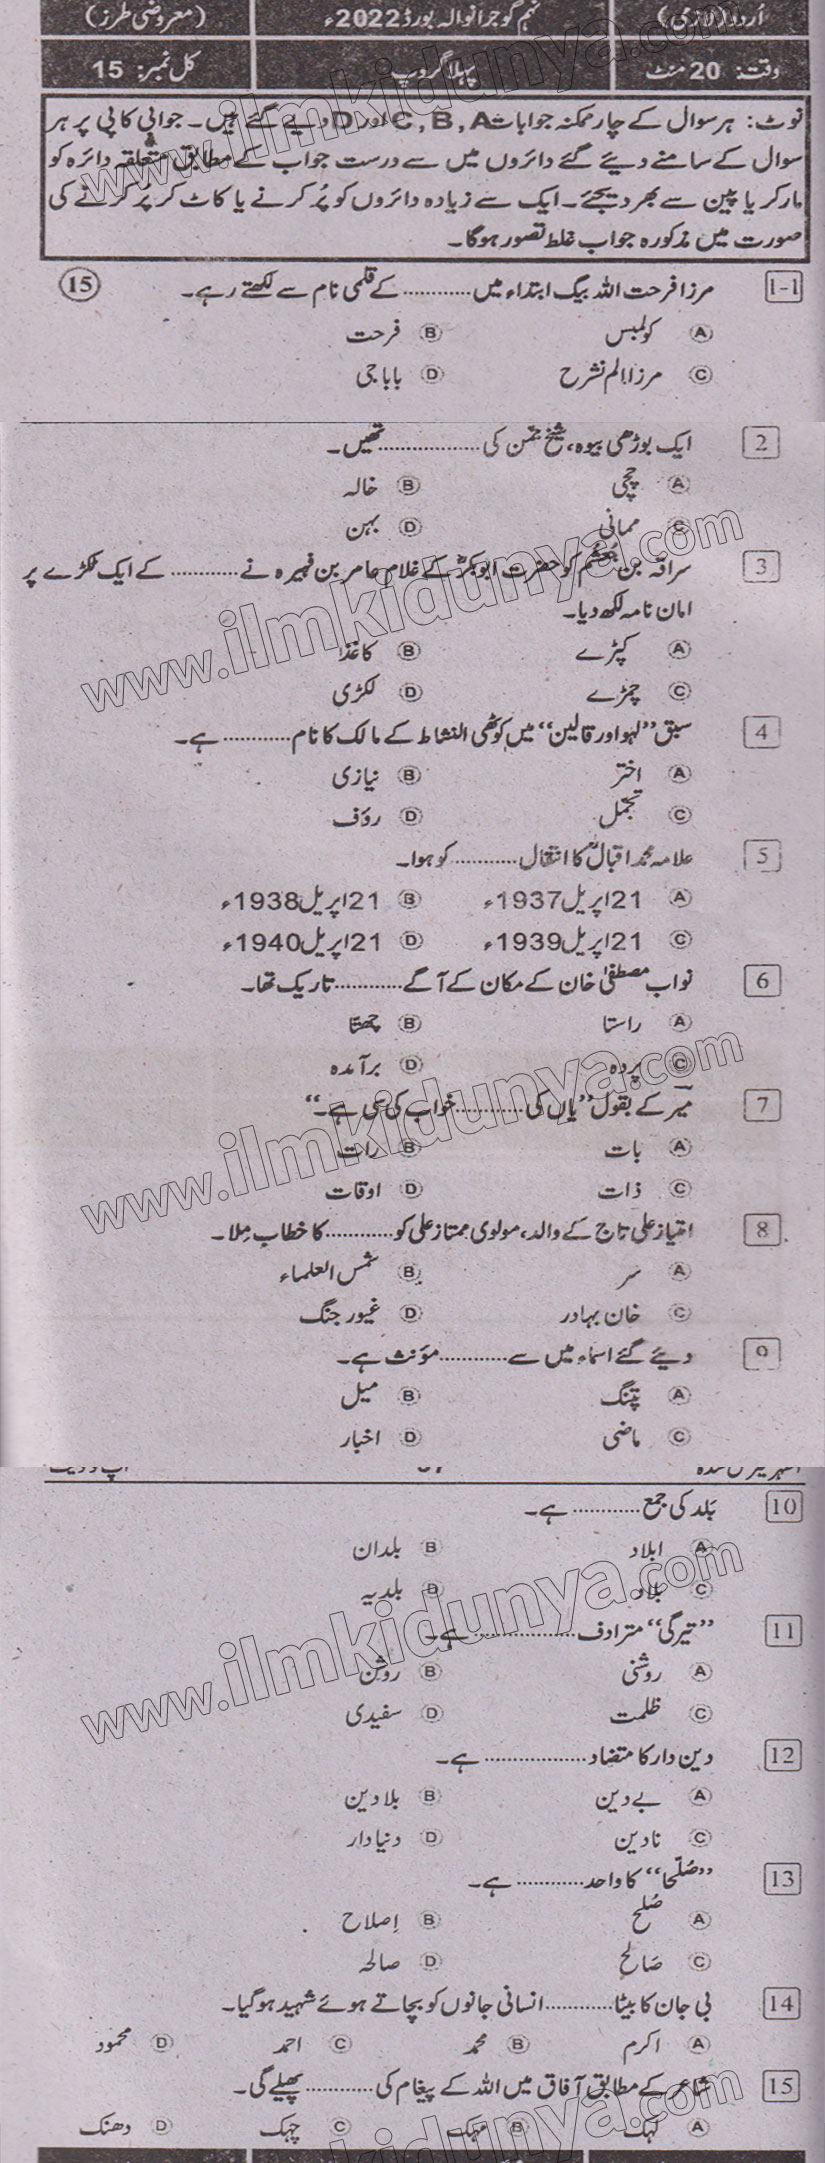 اُردو (لازمی) نہم گوجرانوالہ بورڈ 2022ء (معروضی طرز)
وقت: 20 منٹ پہلا گروپ کل نمبر: 15
نوٹ: ہر سوال کے چار ممکنہ جوابات A، B، C اور D دیے گئے ہیں۔ جوابی کاپی پر ہر
سوال کے سامنے دیئے گئے دائروں میں سے درست جواب کے مطابق متعلقہ دائرہ کو
مارکر یا پین سے بھر دیجئے۔ ایک سے زیادہ دائروں کو پُر کرنے یا کاٹ کر پُر کرنے کی
صورت میں مذکورہ جواب غلط تصور ہوگا۔
1-1 مرزا فرحت اللہ بیگ ابتداء میں ........... کے قلمی نام سے لکھتے رہے۔ (15)
A کولمبس B فرحت
C مرزا الم نشرح D بابا جی
2 ایک بوڑھی بیوہ، شیخ جمّن کی ................. تھیں۔
A چچی B خالہ
C ممانی D بہن
3 سراقہ بن جُعشُم کو حضرت ابوبکرؓ کے غلام عامر بن فہیرہ نے ........... کے ایک ٹکڑے پر
امان نامہ لکھ دیا۔
A کپڑے B کاغذ
C چمڑے D لکڑی
4 سبق ”لہو اور قالین“ میں کوٹھی النشاط کے مالک کا نام ........... ہے۔
A اختر B نیازی
C تجمّل D رؤف
5 علامہ محمد اقبالؒ کا انتقال ........... کو ہوا۔
A 21 اپریل 1937ء B 21 اپریل 1938ء
C 21 اپریل 1939ء D 21 اپریل 1940ء
6 نواب مصطفیٰ خان کے مکان کے آگے ........... تاریک تھا۔
A راستا B چھتا
C پردہ D برآمدہ
7 میر کے بقول ”یاں کی ........... خواب کی سی ہے۔“
A بات B رات
C ذات D اوقات
8 امتیاز علی تاج کے والد، مولوی ممتاز علی کو ........... کا خطاب مِلا۔
A سر B شمس العلماء
C خان بہادر D غیور جنگ
9 دیئے گئے اسماء میں سے ........... مؤنث ہے۔
A پتنگ B میل
C ماضی D اخبار
10 بَلد کی جمع ........... ہے۔
A ابلاد B بلدان
C بلاد D بلدیہ
11 ”تیرگی“ مترادف ................. ہے۔
A روشنی B روشن
C ظلمت D سفیدی
12 دین دار کا متضاد ................. ہے۔
A بے دین B بلا دین
C نادین D دنیا دار
13 ”صُلَحا“ کا واحد ........... ہے۔
A صُلح B اِصلاح
C صَالح D صالحہ
14 بی جان کا بیٹا ........... انسانی جانوں کو بچاتے ہوئے شہید ہوگیا۔
A اکرم B محمد C احمد D محمود
15 شاعر کے مطابق آفاق میں اللہ کے پیغام کی ........... پھیلے گی۔
A لہک B مہک C چہک D دھنک
www.ilmkidunya.com
www.ilmkidunya.com
www.ilmkidunya.com
www.ilmkidunya.com
www.ilmkidunya.com